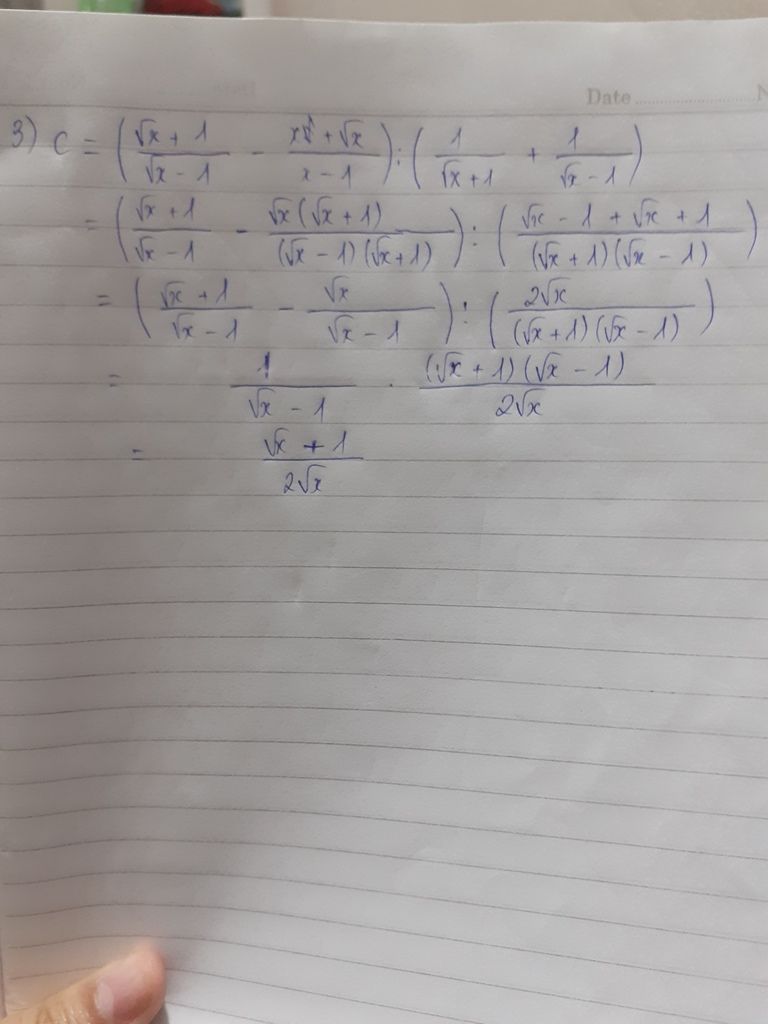 Date
3) C = (√x + 1 / √x - 1 - x + √x / x - 1) : (1 / √x + 1 + 1 / √x - 1)
= (√x + 1 / √x - 1 - √x (√x + 1) / (√x - 1) (√x + 1)) : (√x - 1 + √x + 1 / (√x + 1) (√x - 1))
= (√x + 1 / √x - 1 - √x / √x - 1) : (2√x / (√x + 1) (√x - 1))
= 1 / √x - 1 . (√x + 1) (√x - 1) / 2√x
= √x + 1 / 2√x